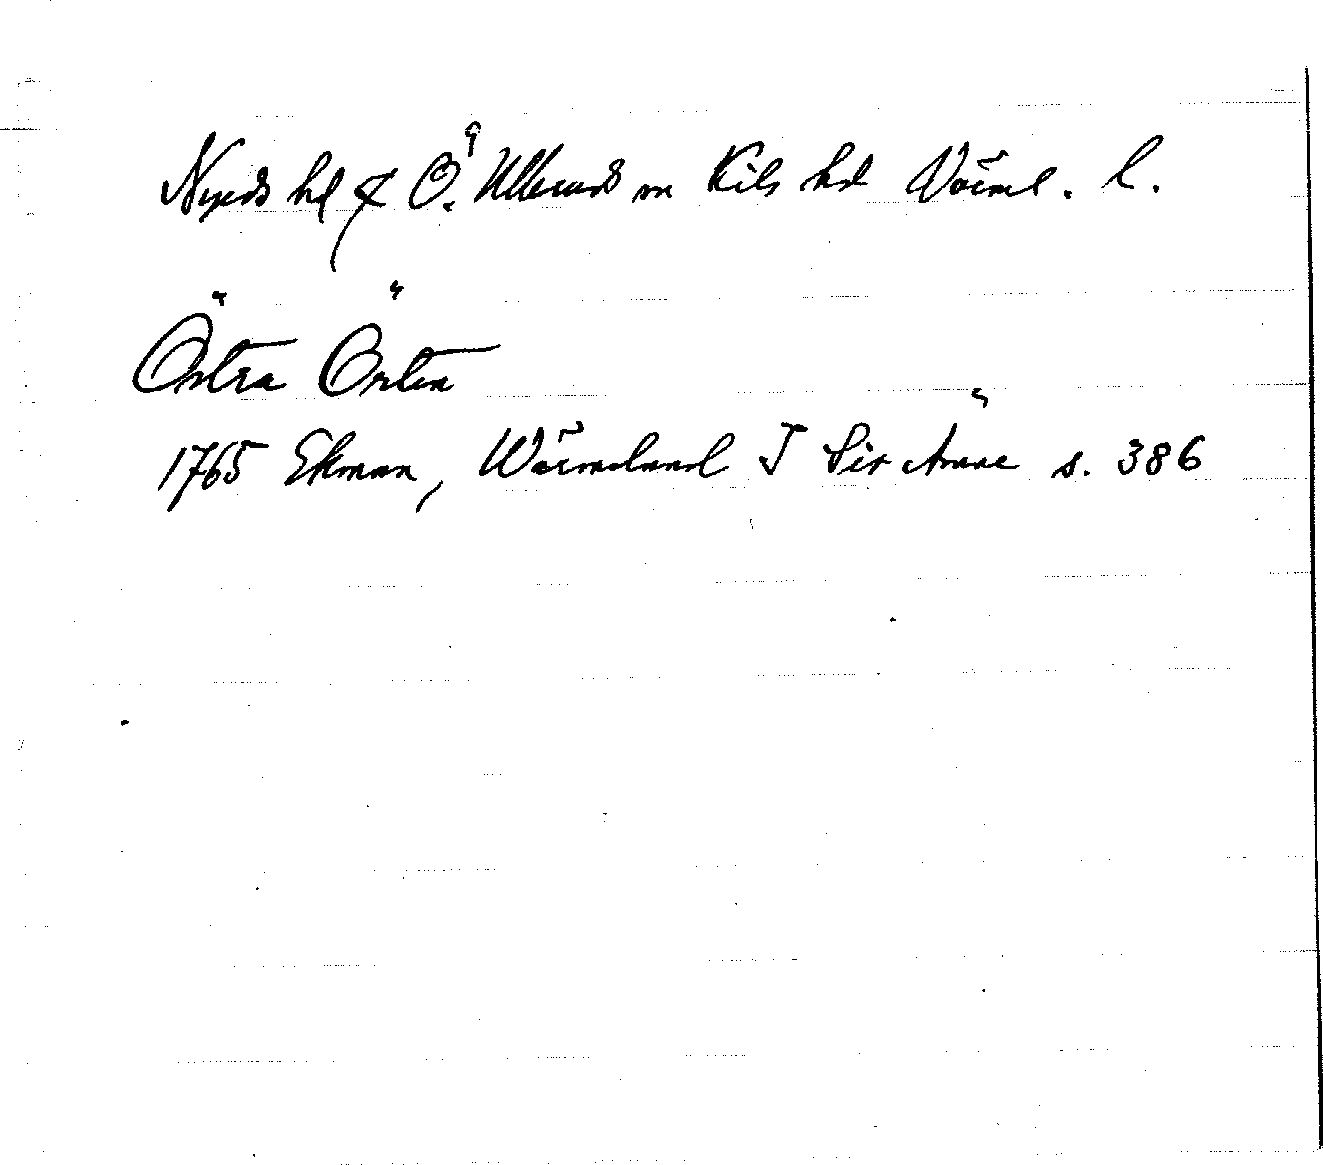 Nyeds hd f Ö. Ulleruds sn Kils hd Värml. l.
Östra Örten
1765 Ekman, Wärmeland I s. 386